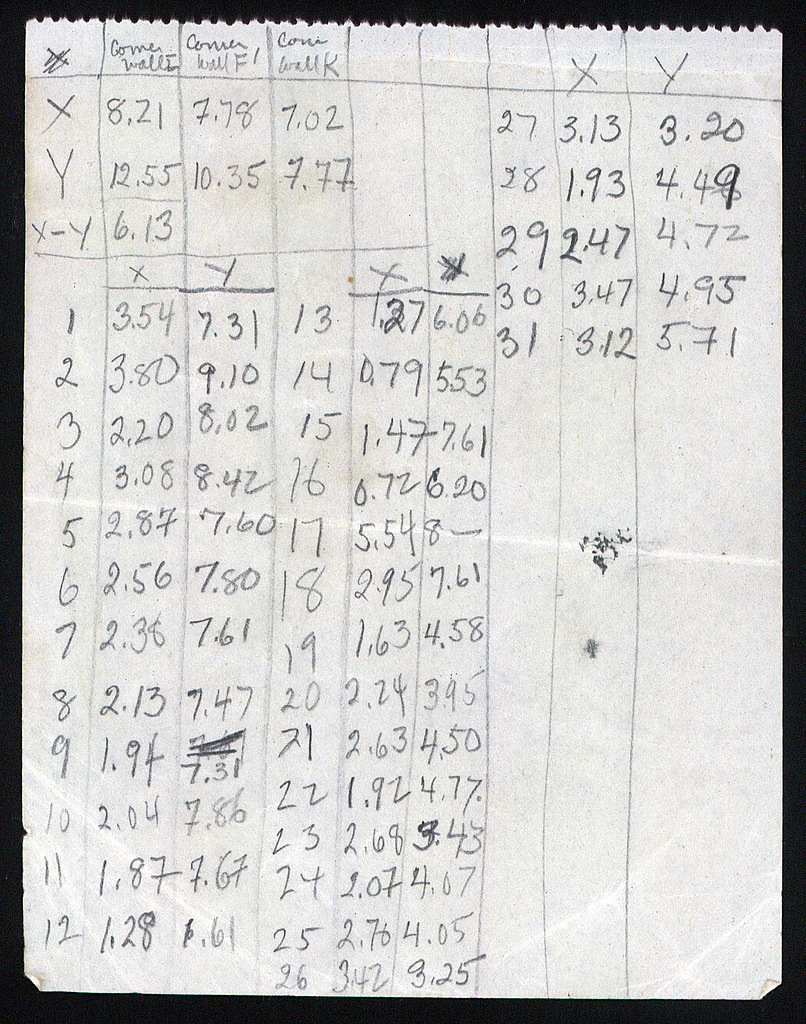 Corner Corner Corn
wall I wall F' wall K
X 8.21 7.78 7.02
Y 12.55 10.35 7.77
X-Y 6.13
X Y
1 3.54 7.31
2 3.80 9.10
3 2.20 8.02
4 3.08 8.42
5 2.87 7.60
6 2.56 7.80
7 2.38 7.61
8 2.13 7.47
9 1.94
7.31
10 2.04 7.86
11 1.87 7.67
12 1.28 6.61
X Y
13 1.27 6.06
14 0.79 5.53
15 1.47 7.61
16 0.72 6.20
17 5.54 8—
18 2.95 7.61
19 1.63 4.58
20 2.24 3.95
21 2.63 4.50
22 1.92 4.77.
23 2.68 3.43
24 2.07 4.07
25 2.76 4.05
26 3.42 3.25
X Y
27 3.13 3.20
28 1.93 4.49
29 2.47 4.72
30 3.47 4.95
31 3.12 5.71